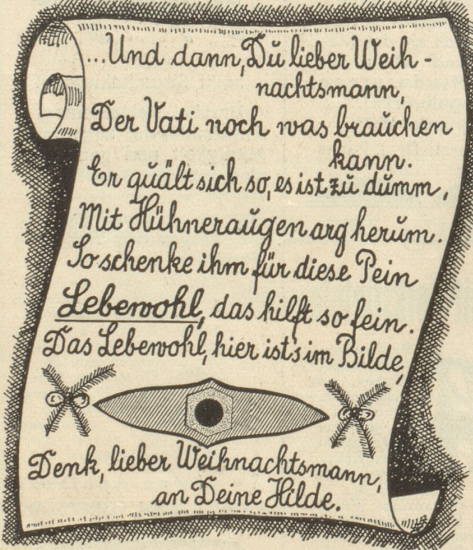 ...Und dann, Du lieber Weih-
nachtsmann,
Der Vati noch was brauchen
kann.
Er quält sich so, es ist zu dumm,
Mit Hühneraugen arg herum.
So schenke ihm für diese Pein
Lebewohl, das hilft so fein.
Das Lebewohl, hier ist's im Bilde,
Denk, lieber Weihnachtsmann,
an Deine Hilde.